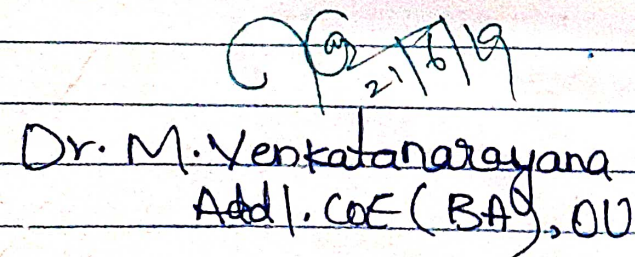 21/6/19
Dr. M. Venkatanarayana
Addl. COE (BA), OU